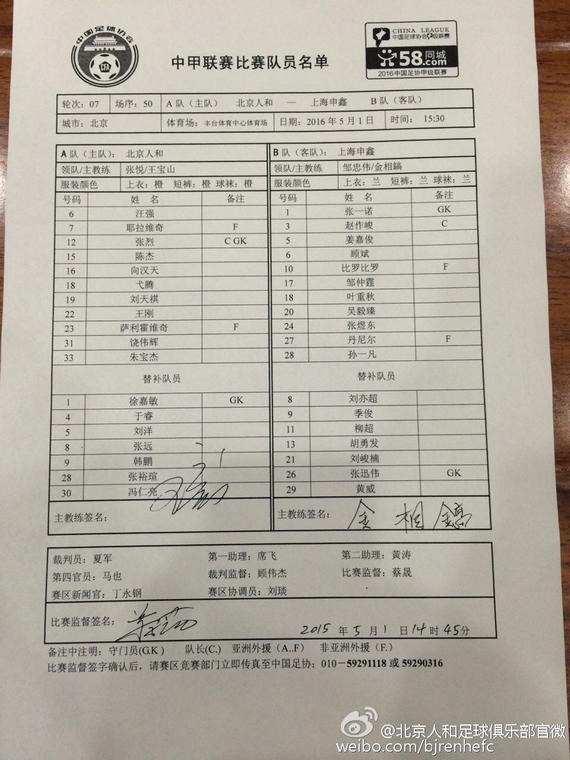 中国足球协会
CFA
中甲联赛比赛队员名单
CHINA LEAGUE
中国足球协会甲级联赛
58同城
.com
2016中国足协甲级联赛
轮次：07 场序：50 A 队（主队） 北京人和 — 上海申鑫 B 队（客队）
城市：北京 体育场：丰台体育中心体育场 日期：2016 年 5 月 1 日 时间： 15:30
A 队（主队）： 北京人和 B 队（客队）： 上海申鑫
领队/主教练 张悦/王宝山 领队/主教练 邹忠伟/金相鎬
服装颜色 上衣：橙 短裤：橙 球袜：橙 服装颜色 上衣：兰 短裤：兰 球袜：兰
号码 姓 名 备注 号码 姓 名 备注
6 汪强 1 张一诺 GK
7 耶拉维奇 F 3 赵作峻 C
12 张烈 C GK 5 姜嘉俊
15 陈杰 6 顾斌
16 向汉天 10 比罗比罗 F
18 弋腾 17 邹仲霆
19 刘天祺 18 叶重秋
22 王刚 20 吴毅臻
23 萨利霍维奇 F 24 张煜东
31 饶伟辉 27 丹尼尔 F
33 朱宝杰 28 孙一凡
替补队员 替补队员
1 徐嘉敏 GK 8 刘亦超
4 于睿 9 季俊
5 刘洋 11 柳超
8 张远 13 胡勇发
9 韩鹏 21 刘峻楠
28 张裕瑄 26 张迅伟 GK
30 冯仁亮 29 黄威
主教练签名： 主教练签名： 金相鎬
裁判员：夏军 第一助理：席飞 第二助理：黄涛
第四官员：马也 裁判监督：顾伟杰 比赛监督：蔡晟
赛区新闻官：丁永钢 赛区协调员：刘琰
比赛监督签名： 2015 年 5 月 1 日 14 时 45 分
备注中注明： 守门员(G.K ) 队长(C.) 亚洲外援（A..F） 非亚洲外援（F.）
比赛监督签字确认后，请赛区竞赛部门立即传真至中国足协：010－59291118 或 59290316
@北京人和足球俱乐部官微
weibo.com/bjrenhefc